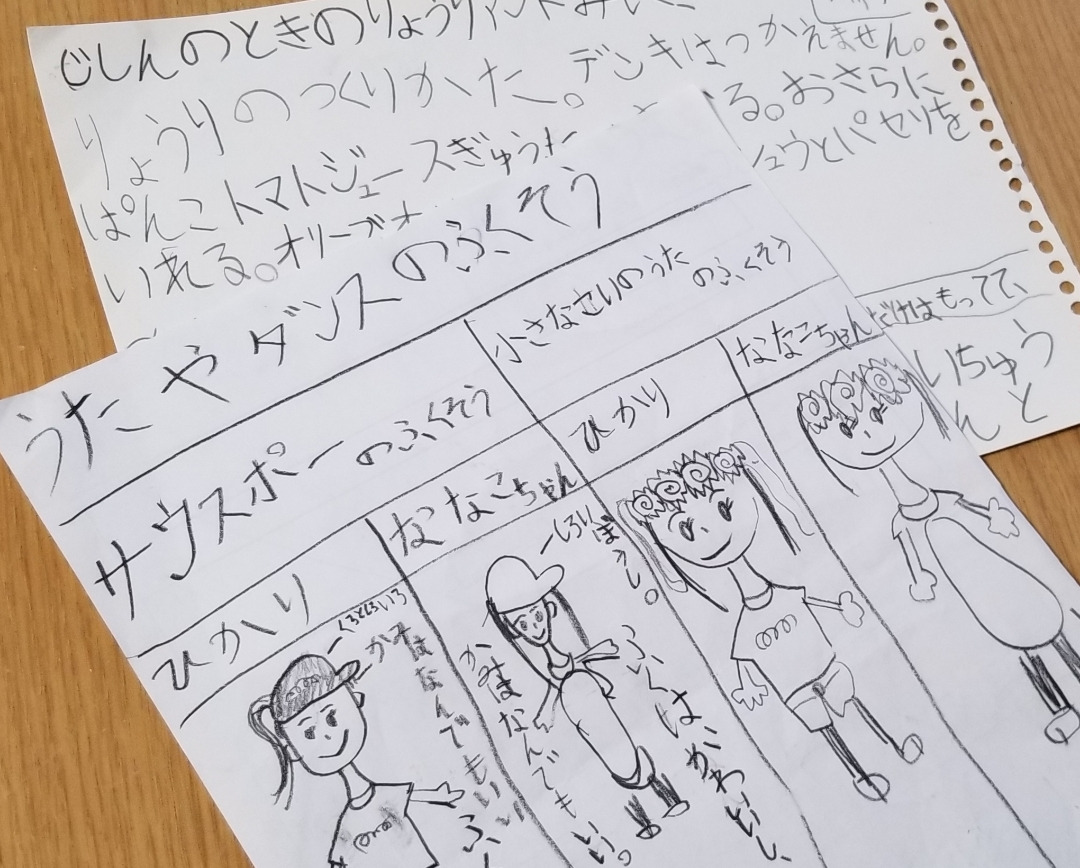 じしんのときのりょうり
りょうりのつくりかた。デンキはつかえません。
ぱんこトマトジュースぎゅうた る。おさらに
いれる。オリーブオ ュウとパセリを
だけはもってて、
いちゅう
んと
うたやダンスのふくそう
サウスポーのふくそう
小さなせいのうた
のふくそう
ひかり
ななこちゃん
ひかり
ななこちゃん
くろときいろ
かみはなんでもいい
ふ
しろいぼうし。
かみはなんでもいい。
ふくは、かわいいし、